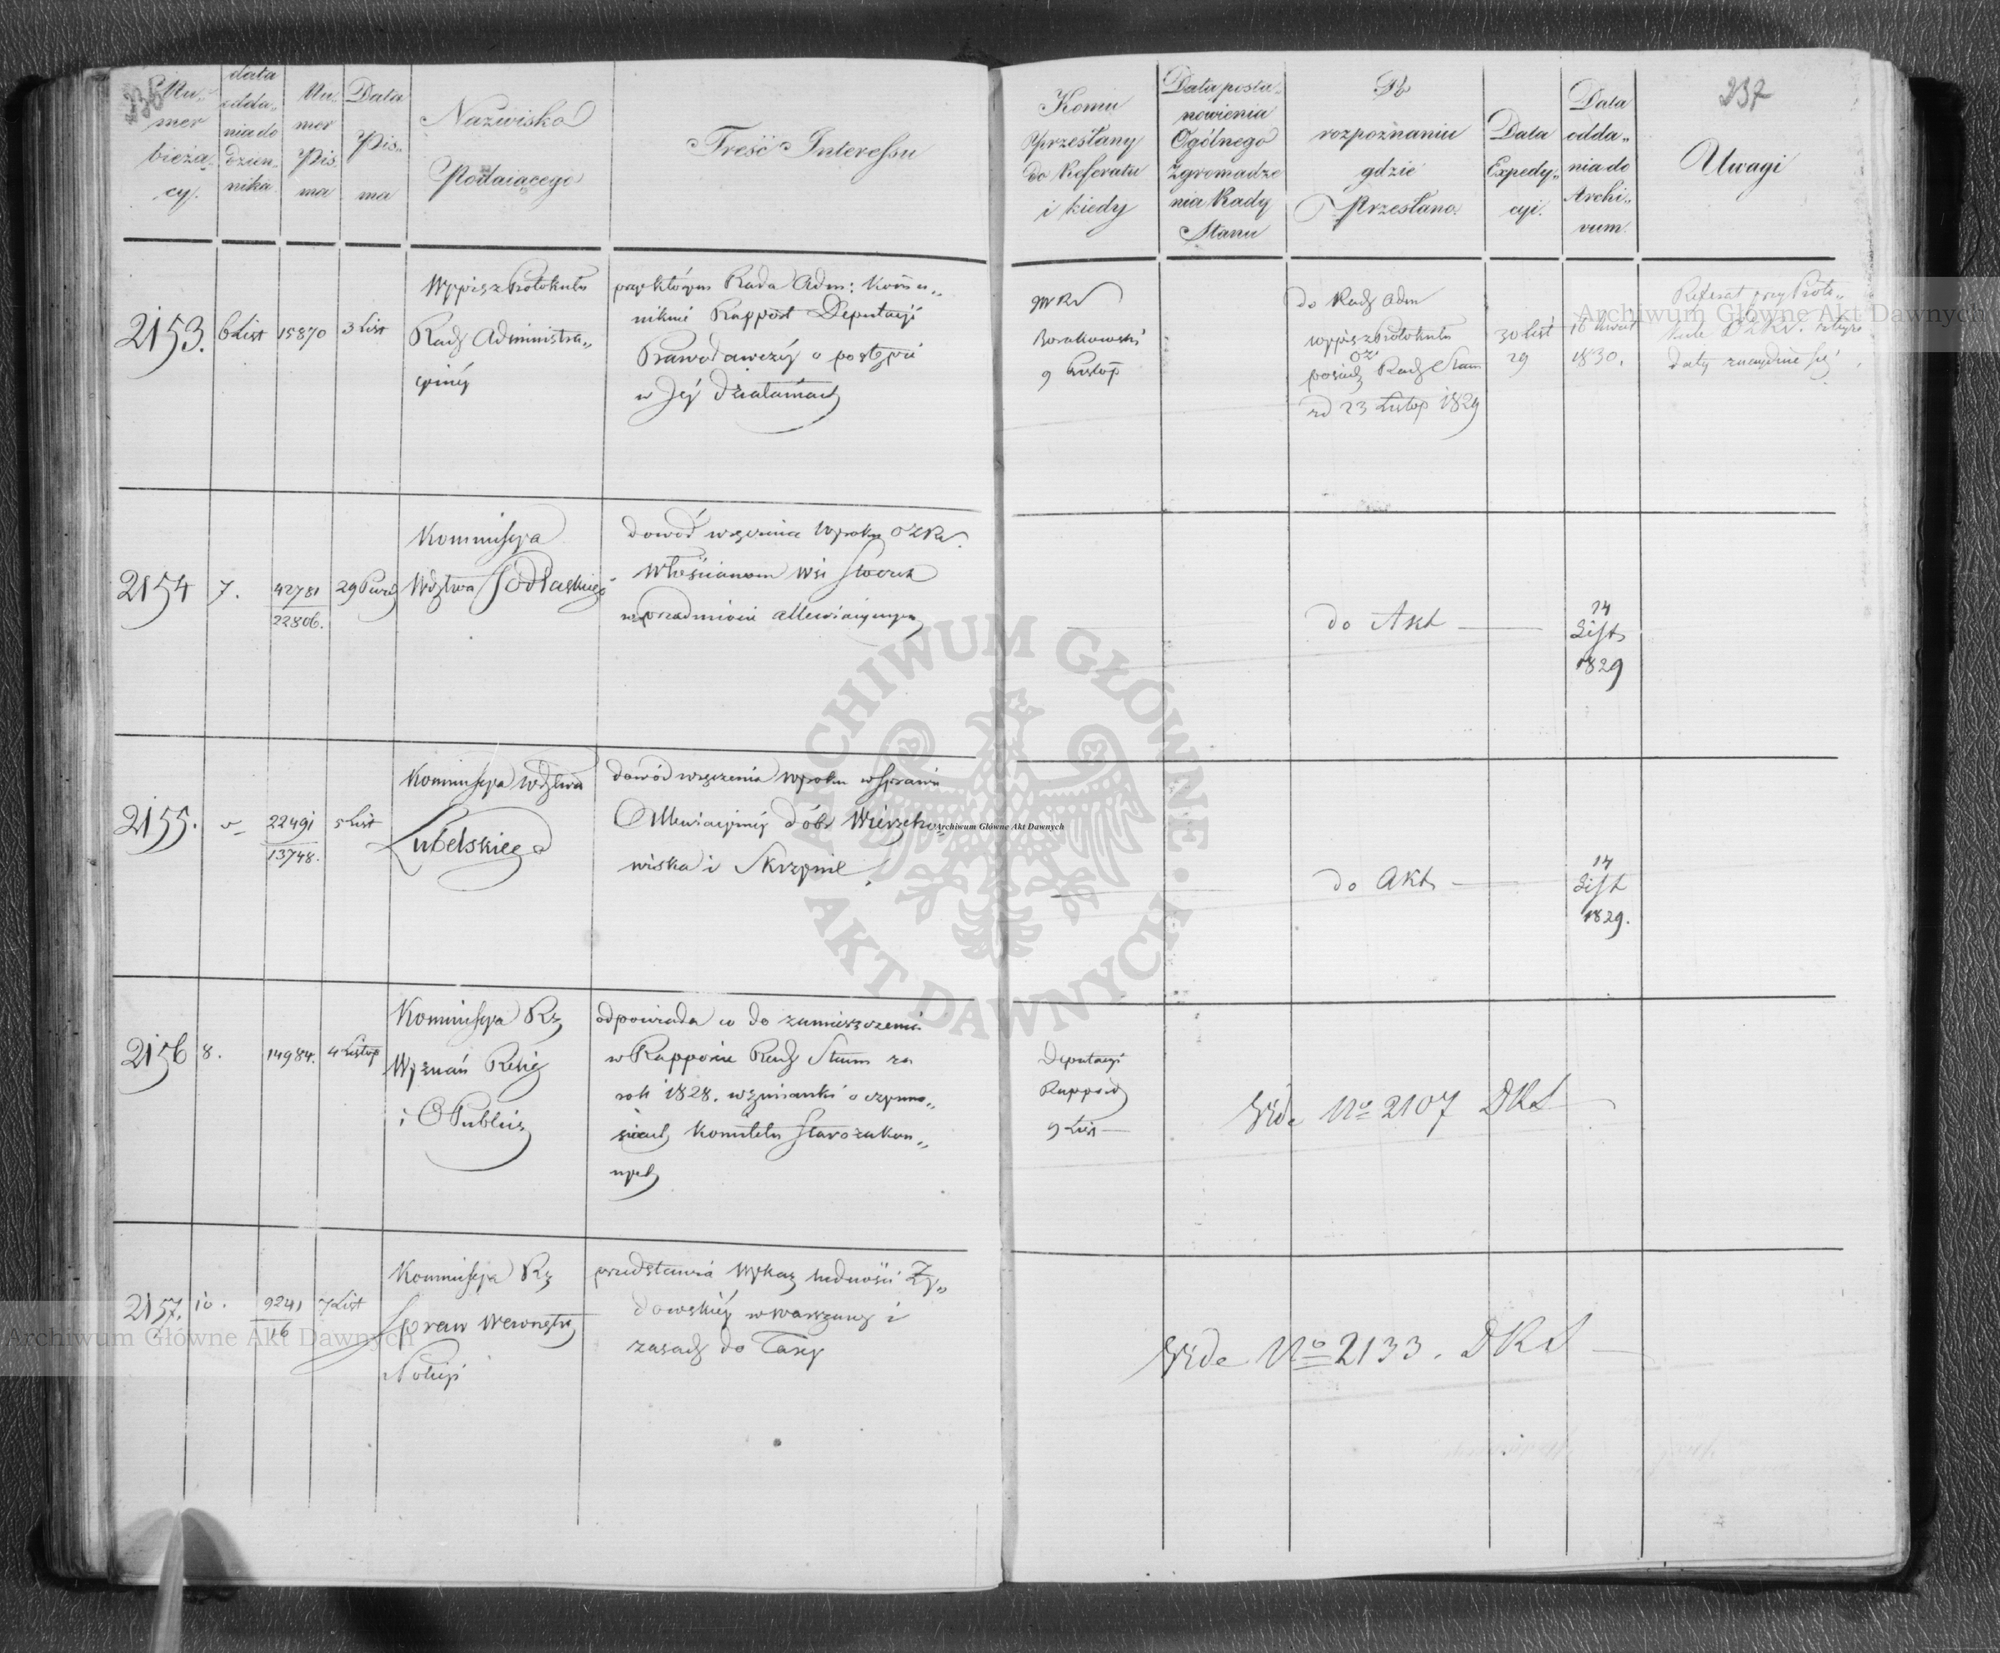 236
Nu„
mer
bieżą„
cy.
data
odda„
nia do
dzien„
nika
Nu„
mer
Pis
ma
Data
Pis„
ma
Nazwisko
Podaiącego
Treść Interessu
Komu
Przesłany
do Referatu
i kiedy
Data posta„
nowienia
Ogólnego
Zgromadze
nia Rady
Stanu
Po
rozpoznaniu
gdzie
Przesłano
Data
Expedy„
cyi.
Data
odda„
nia do
Archi„
vum.
237
Uwagi
2153.
6 List
15870
3 List
Wypis z Protokułu
Rady Administra„
cyinéy
przy którym Rada Adm: Kom̃u„
nikuie Rapport Deputacyi
Prawodawczéy o postępie
w Jéy działaniach
MRS
9 Listop
do Rady Adm
wypis z Protokułu
posiedz Rady Stanu
od 23 Listop 1829
30 List
29
16 Kwiet
1830.
Referat przy Proto„
daty znayduie się
2154
7.
42781
22806.
29 Paźd
Kommissya
Wdztwa Podlaskiego
dowód wręczenia Wyroku OZRS.
Włościanom wsi
w przedmiocie allewiacyinym
do Akt
14
List
1829
2155.
22491
13748.
5 List
Kommissya Wdztwa
Lubelskiego
dowód wręczenia Wyroku w Sprawie
Allewiacyinéy dóbr Wierzcho„
wiska i Skrzynic
do Akt
14
List
1829.
2156
8.
14984.
4 Listop
Kommissya Rz
Wyznań Relig
i O Public
odpowiada co do zamieszczenia
w Rapporcie Rady Stanu za
rok 1828. wzmianki o czynno„
ściach Komitetu Starozakon„
nych
Deputacyi
Rapport
9 List
Vide No 2107 DRS
2157.
10.
9241
16
7 List
Kommissya Rz
Spraw Wewnętrz
i Policyi
przedstawia Wykaz ludności Ży„
dowskiéy w Warszawie i
zasady do Taxy
Vide No 2133. DRS
ARCHIWUM GŁÓWNE AKT DAWNYCH
Archiwum Główne Akt Dawnych
Archiwum Główne Akt Dawnych
Archiwum Główne Akt Dawnych